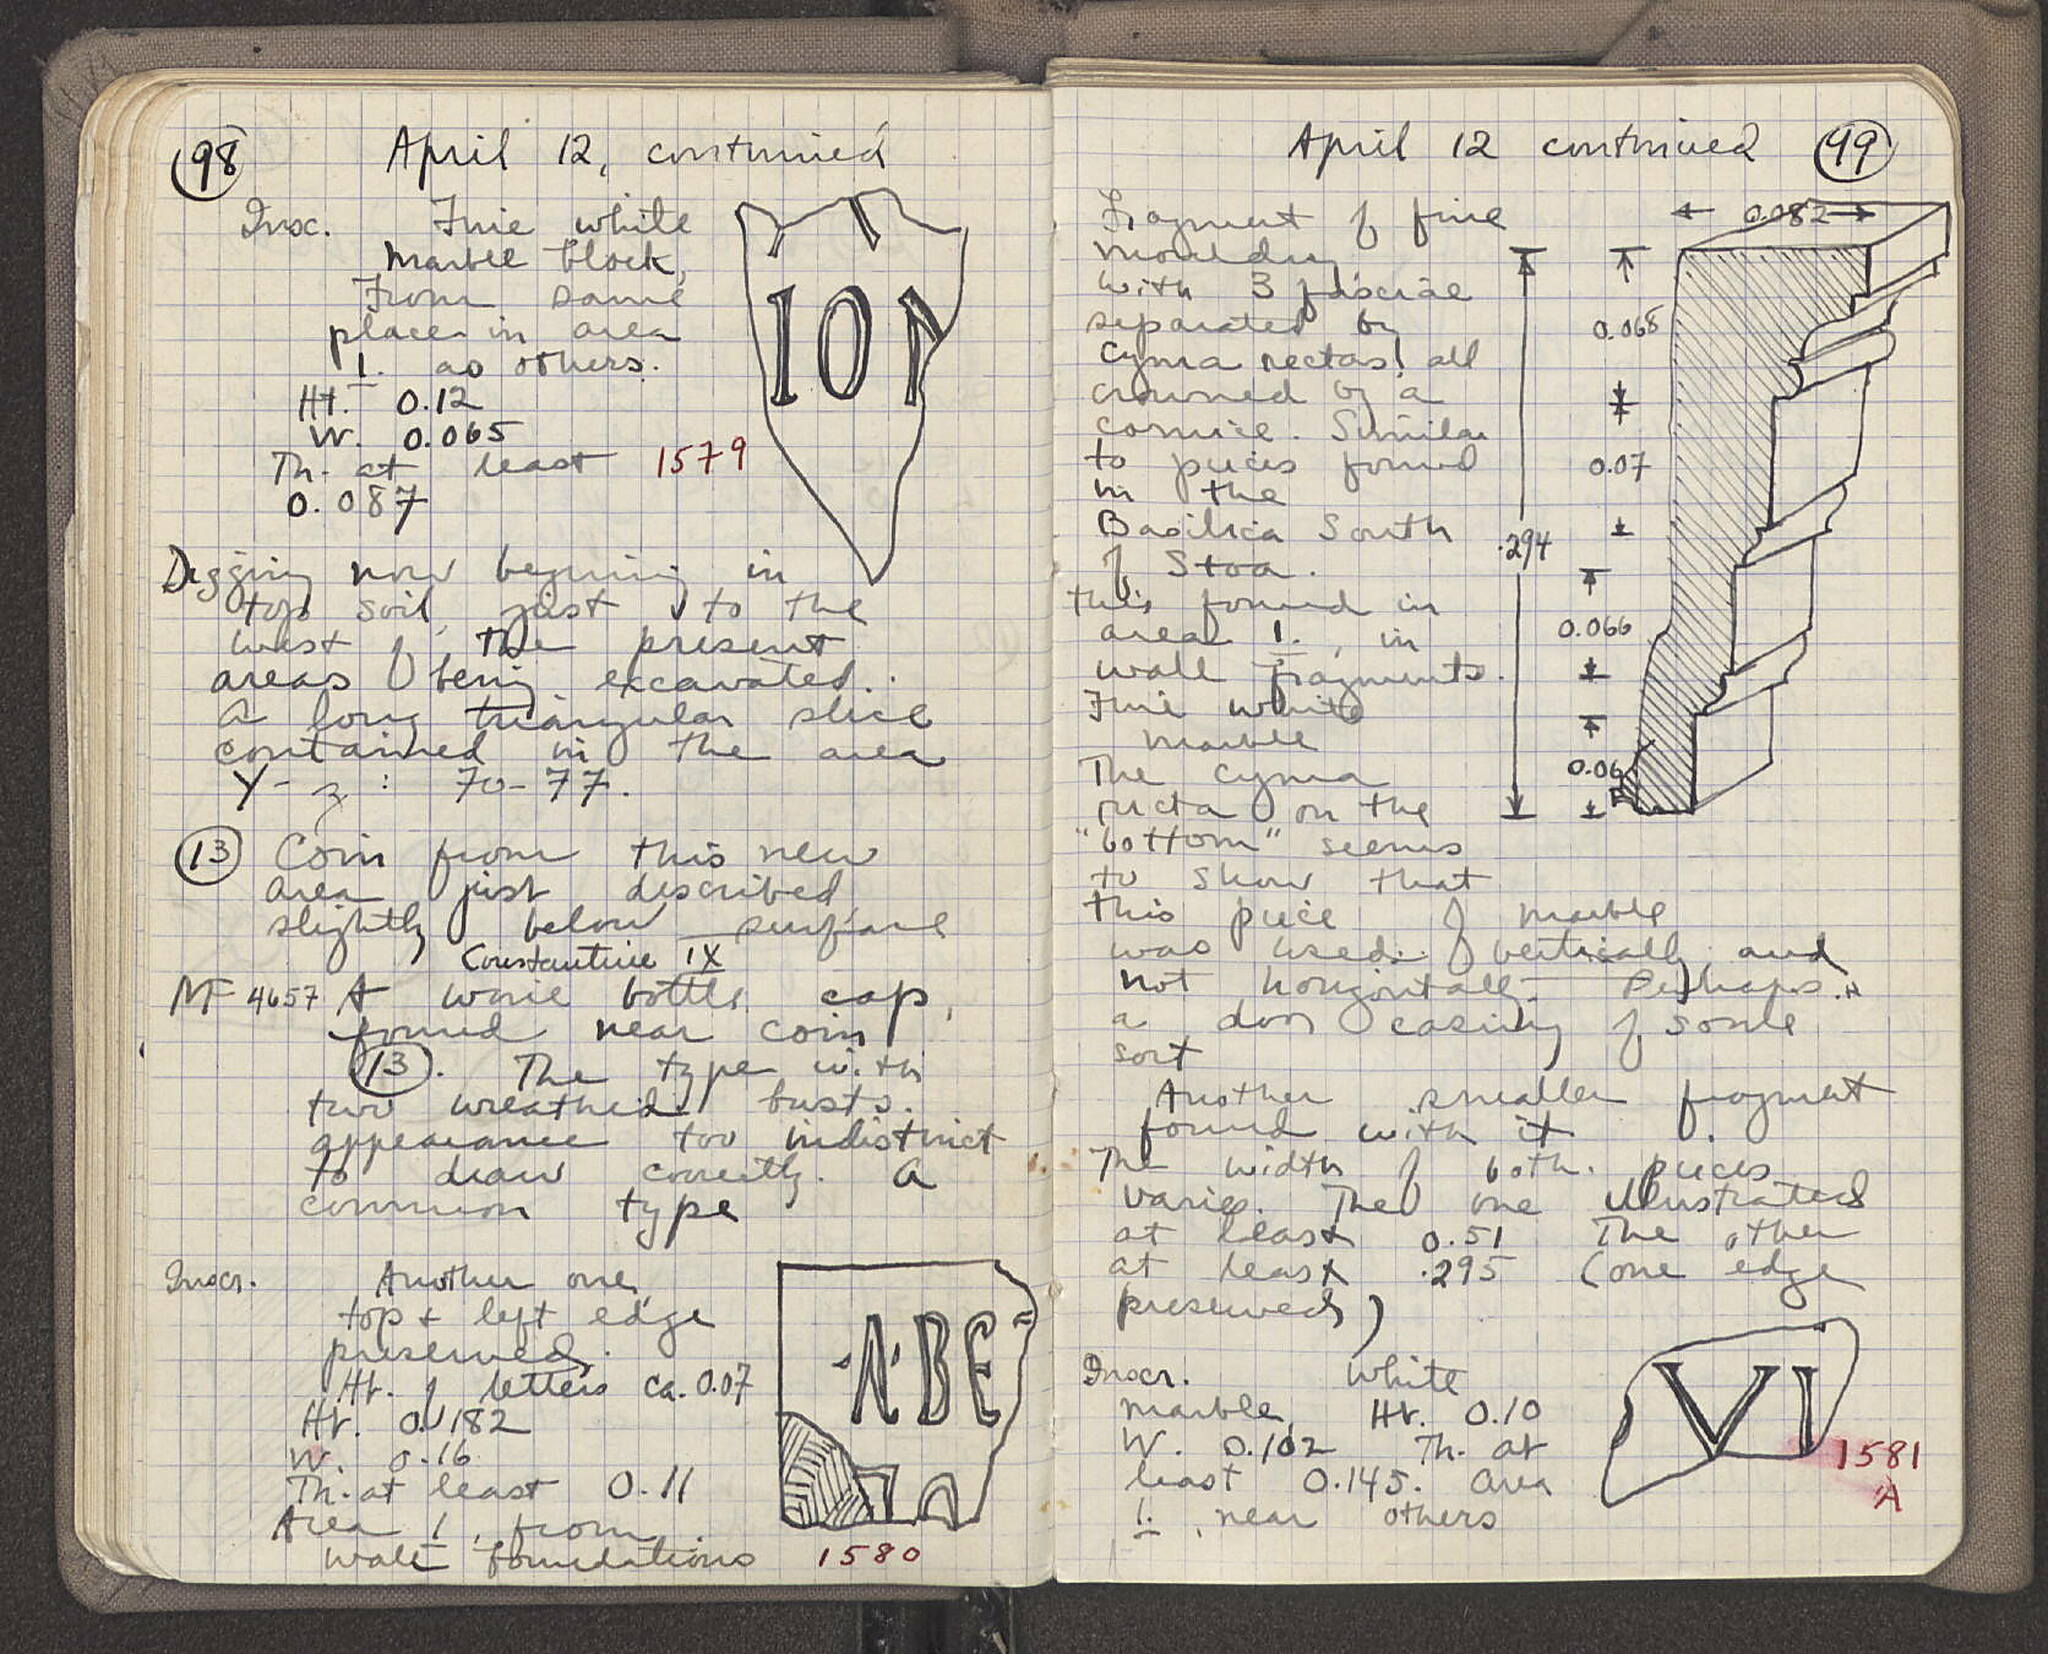 98
April 12, continued
Insc. Fine white
marble block,
From same
place in area
1. as others.
Ht. 0.12
W. 0.065
Th. at least
0.087
1579
ION
Digging now begining in
top soil, just to the
west of the present
areas being excavated.
A long triangular slice
contained in the area
Y-z: 70-77.
13 Coin from this new
area just described
slightly below surface
Constantine IX
MF 4657 A wine bottle cap,
found near coin
13. The type with
two wreathed busts.
appearance too indistinct
to draw correctly. A
common type
Inscr. Another one,
top + left edge
preserved.
Ht. of letters ca. 0.07
Ht. 0.182
W. 0.16
Th. at least 0.11
Area 1, from
wall foundations
·N·BE
1580
April 12 continued 99
Fragment of fine
moulding
with 3 fasciae
separated by
cyma rectas, all
crowned by a
cornice. Similar
to pieces found
in the
Basilica South
of Stoa.
this found in
area 1., in
wall fragments.
Fine white
marble
The cyma
recta on the
"bottom" seems
to show that
this piece of marble
was used vertically and
not horizontally. Perhaps
a door casing of some
sort
0.082
0.068
0.07
.294
0.066
0.06
Another smaller fragment
found with it.
The width of both pieces
varies. The one illustrated
at least 0.51 The other
at least .295 (one edge
preserved)
Inscr. White
marble, Ht. 0.10
W. 0.102 Th. at
least 0.145. Area
1., near others
VI
1581
A